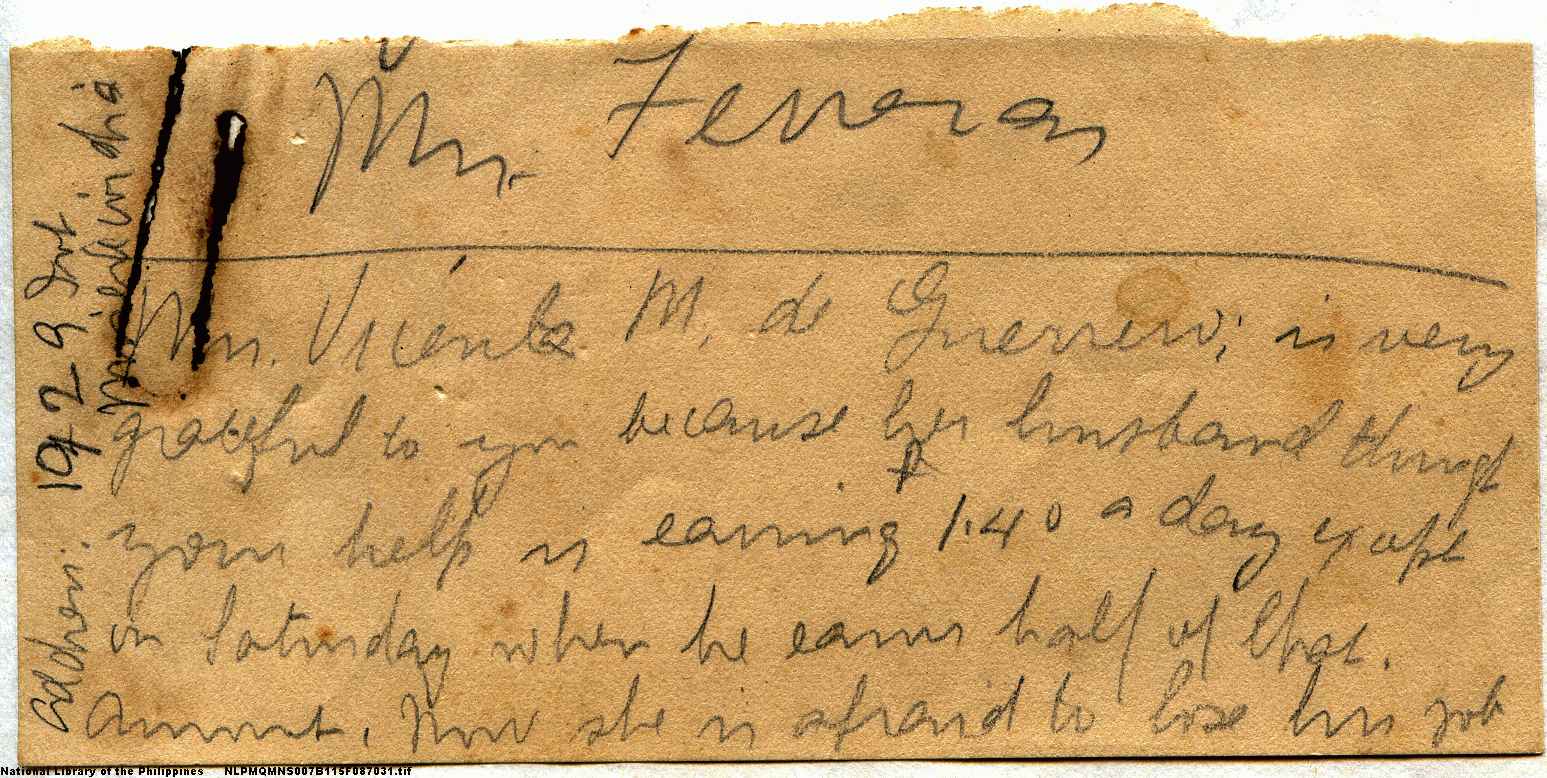 Mr. Ferreras
Mrs. Vicenta M. de Guerrero, is very
grateful to you because her husband through
your help is earning ₱ 1.40 a day except
on Saturday when he earns half of that.
Amount. Now she is afraid to lose his job
Address: 1429 Int.
National Library of the Philippines NLPMQMNS007B115F087031.tif